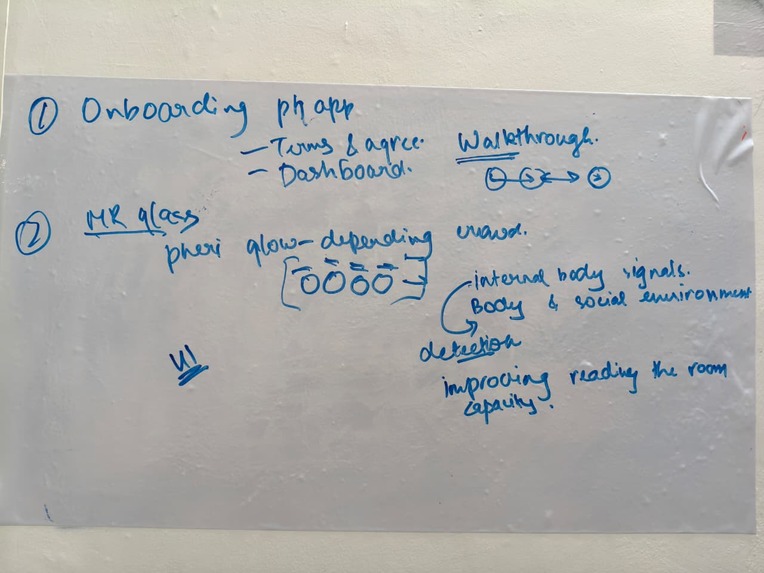 ① Onboarding ph app
– Terms & agree.
– Dashboard.
Walkthrough.
② MR glass
pheri glow – depending crowd.
internal body signals.
Body & social environment
detection
improving reading the room
capacity.
UI